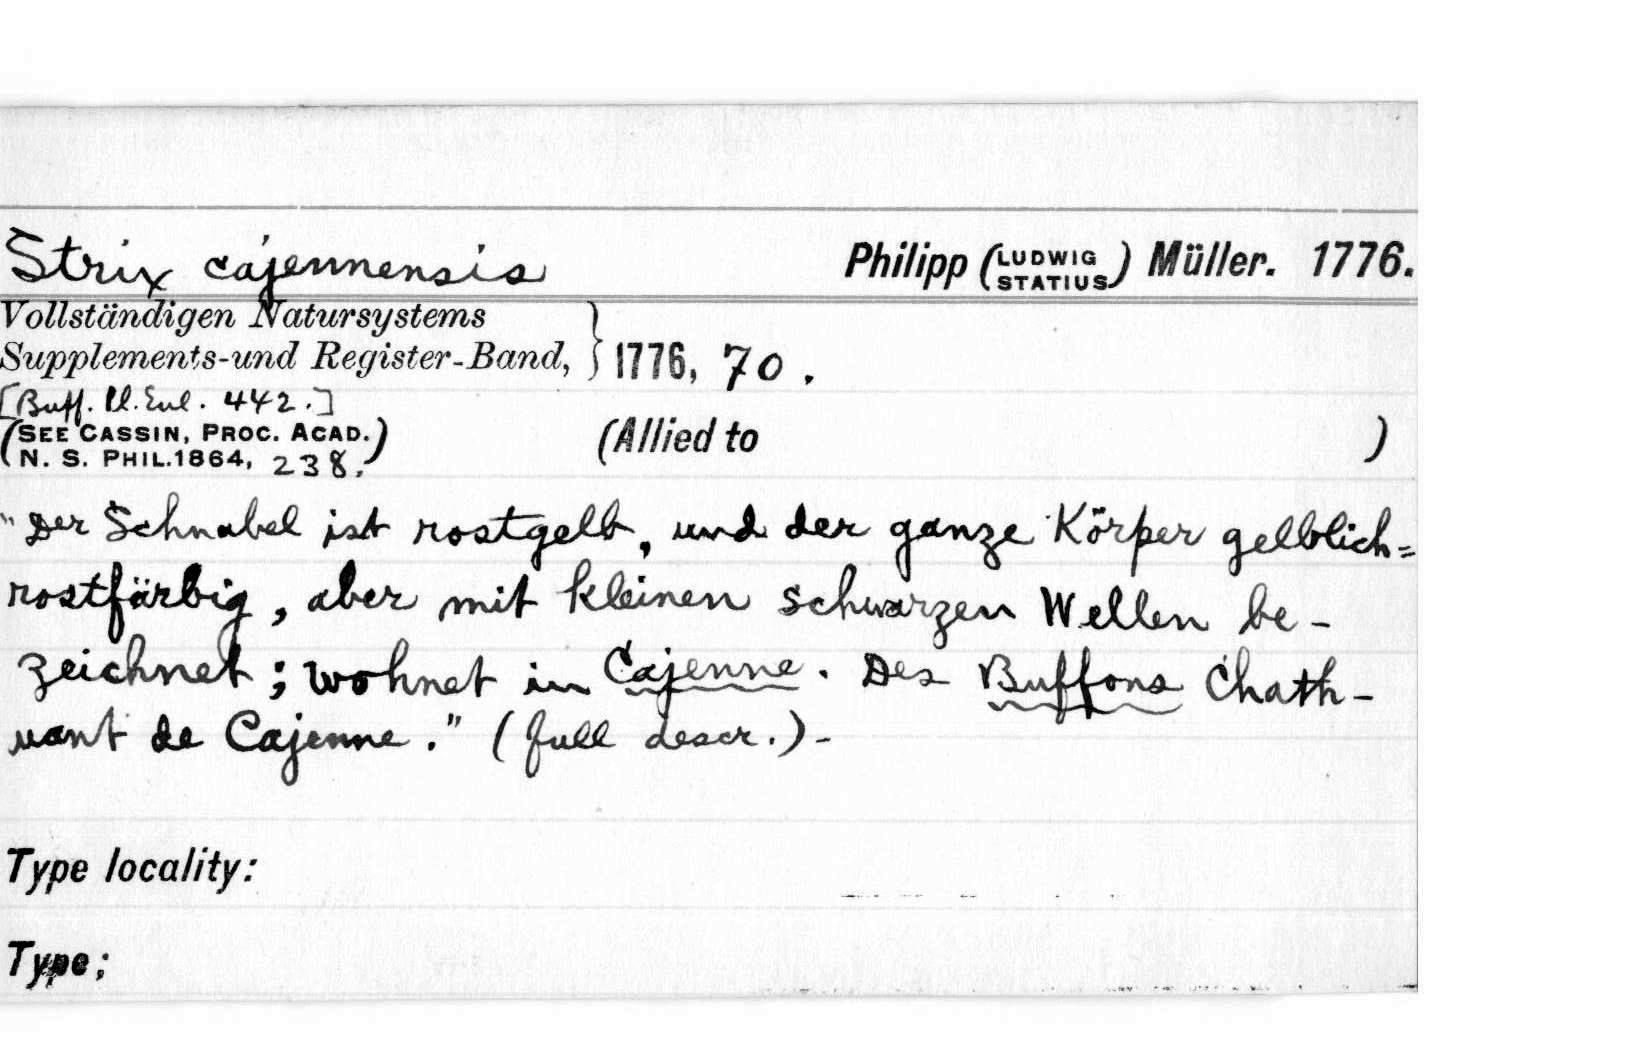 Strix cajennensis Philipp (LUDWIG STATIUS) Müller. 1776.
Vollständigen Natursystems
Supplements-und Register-Band, } 1776, 70.
[Buff. Pl. Enl. 442.]
(SEE CASSIN, PROC. ACAD.
N. S. PHIL. 1864, 238.) (Allied to )
"Der Schnabel ist rostgelb, und der ganze Körper gelblich=
rostfärbig, aber mit kleinen schwarzen Wellen be-
zeichnet; wohnet in Cajenne. Des Buffons Chath-
uant de Cajenne." (full descr.)-
Type locality:
Type;